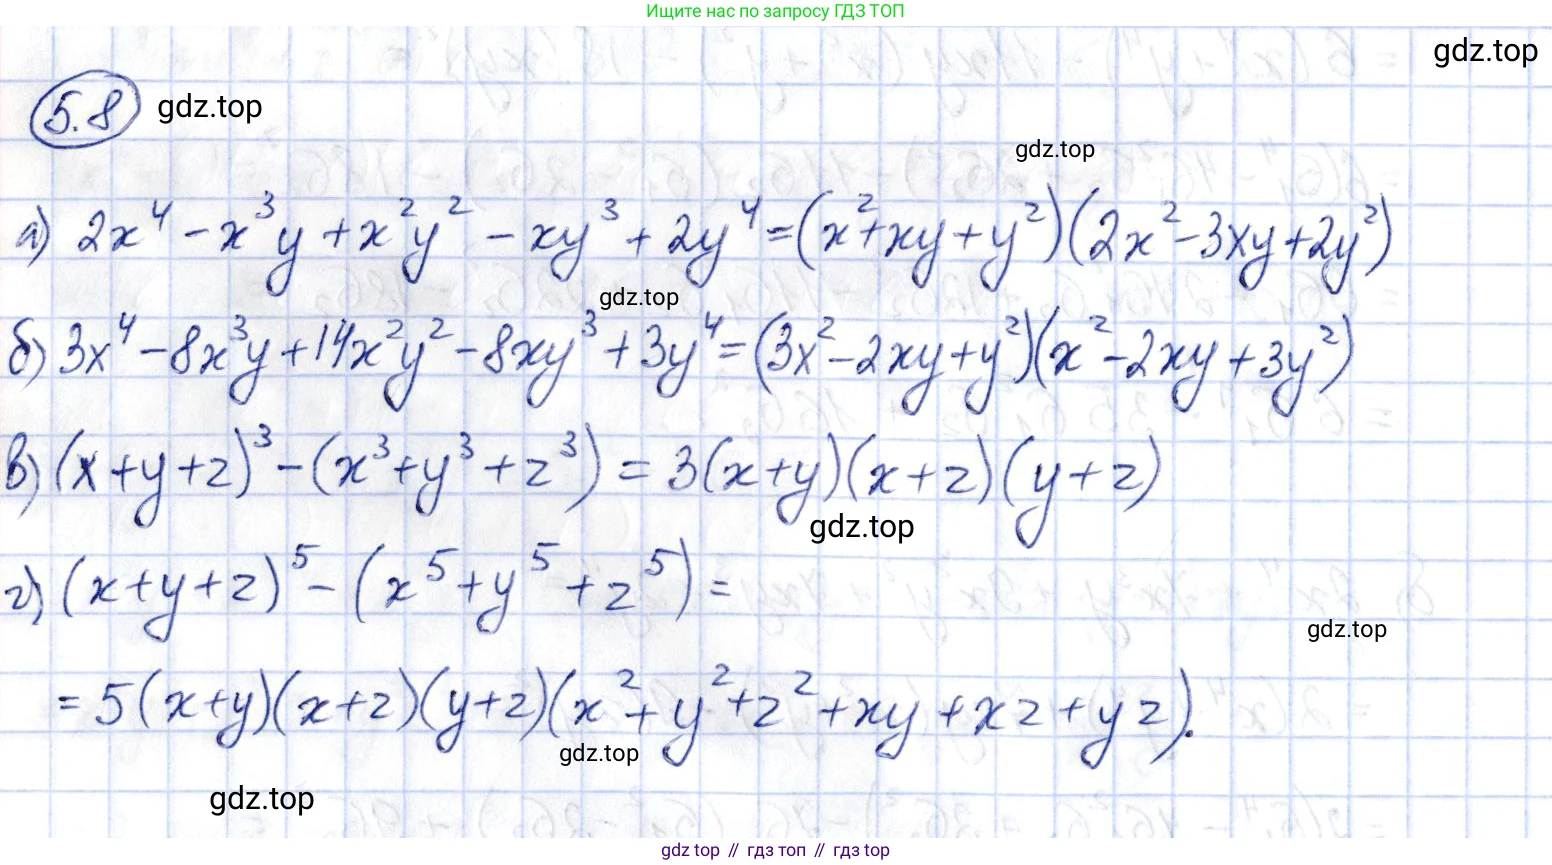 Ищите нас по запросу ГДЗ ТОП
gdz.top
5.8 gdz.top
gdz.top
а) 2x⁴ - x³y + x²y² - xy³ + 2y⁴ = (x² + xy + y²)(2x² - 3xy + 2y²)
gdz.top
б) 3x⁴ - 8x³y + 14x²y² - 8xy³ + 3y⁴ = (3x² - 2xy + y²)(x² - 2xy + 3y²)
в) (x + y + z)³ - (x³ + y³ + z³) = 3(x + y)(x + z)(y + z)
gdz.top
г) (x + y + z)⁵ - (x⁵ + y⁵ + z⁵) =
gdz.top
= 5(x + y)(x + z)(y + z)(x² + y² + z² + xy + xz + yz).
gdz.top
gdz.top
gdz top // гдз топ // гдз top